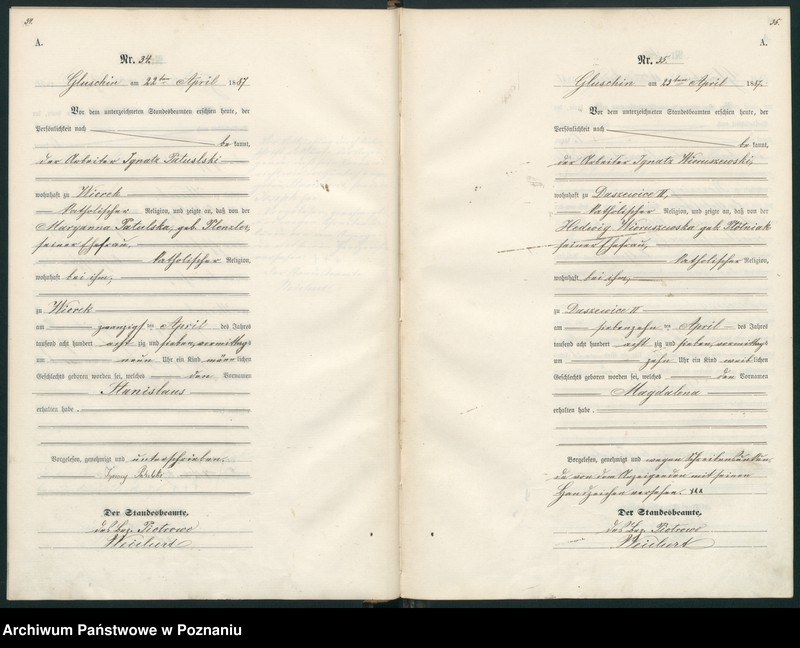 34.
A.
Nr. 34.
Gluschin am 22ten April 1887
Vor dem unterzeichneten Standesbeamten erschien heute, der
Persönlichkeit nach
be kannt,
der Arbeiter Ignatz
wohnhaft zu Wiorek
katholischer Religion, und zeigte an, daß von der
Maryanna geb.
seiner Ehefrau
katholischer Religion,
wohnhaft bei ihm,
zu Wiorek
am zwanzigsten April des Jahres
tausend acht hundert acht zig und sieben, vormittags
um neun Uhr ein Kind männlichen
Geschlechts geboren worden sei, welches den Vornamen
Stanislaus
erhalten habe.
Vorgelesen, genehmigt und unterschrieben.
Der Standesbeamte.
des Bez. Piotrowo
35.
A.
Nr. 35
Gluschin am 23ten April 1887.
Vor dem unterzeichneten Standesbeamten erschien heute, der
Persönlichkeit nach
be kannt,
der Arbeiter Ignatz Wieruszewski,
wohnhaft zu Daszewice II,
katholischer Religion, und zeigte an, daß von der
Hedwig Wieruszewska geb. Plotniak
seiner Ehefrau,
katholischer Religion,
wohnhaft bei ihm,
zu Daszewice II
am siebenzehn ten April des Jahres
tausend acht hundert acht zig und sieben, vormittags
um zehn Uhr ein Kind weiblichen
Geschlechts geboren worden sei, welches den Vornamen
Magdalena
erhalten habe.
Vorgelesen, genehmigt und wegen Schreibensunkun-
de von dem Anzeigenden mit seinem
Handzeichen versehen. xxx
Der Standesbeamte.
des Bez. Piotrowo
Archiwum Państwowe w Poznaniu